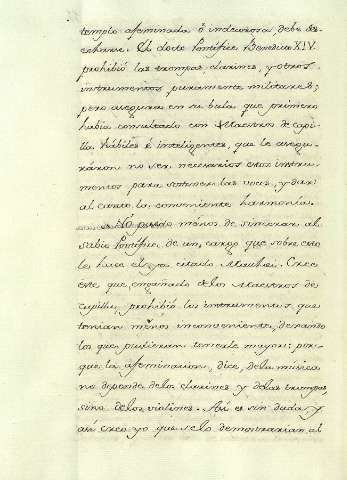 templo afeminada ó indecorosa debe de-
secharse. El docto Pontifice Benedicto XIV.
prohibió las trompas, clarines, y otros
instrumentos puramente militares;
pero asegura en su bula que primero
habia consultado con Maestros de capi-
lla hábiles é inteligentes, que le asegu-
ráron no ser necesarios estos instru-
mentos para sostener las voces, y dar
al canto la conveniente harmonía.
No puedo ménos de sincerar al
sabio Pontifice de un cargo que sobre esto
le hace el ya citado
este que engañado de los Maestros de
capilla prohibió los instrumentos que
tenian ménos inconveniente, dexando
los que pudieran tenerle mayor: por-
que la afeminacion, dice, de la música
no depende de los clarines y de las trompas,
sino de los violines. Asi es sin duda y
asi creo yo que se lo demostrarian al